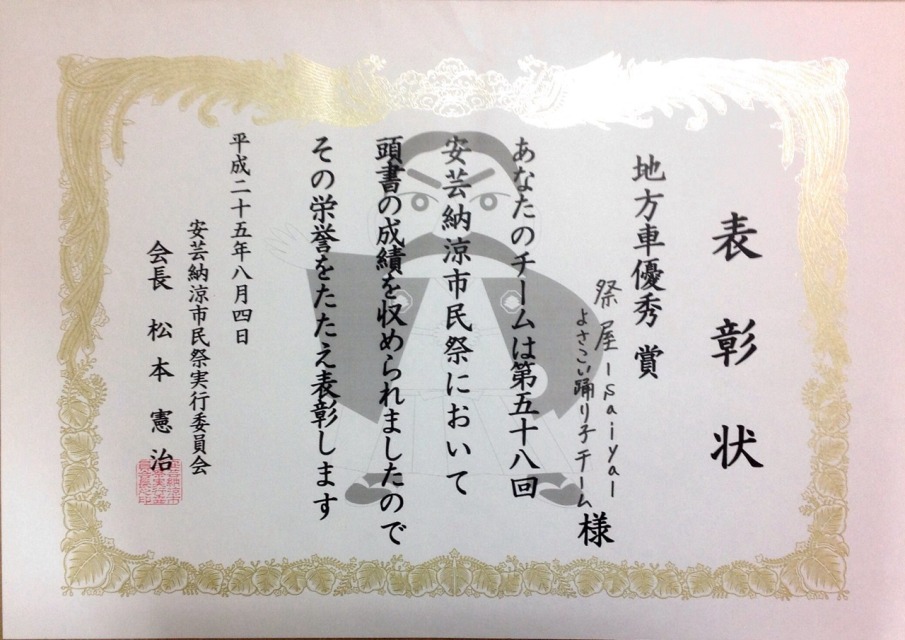 表彰状
地方車優秀賞
祭屋-saiya-
よさこい踊り子チーム様
あなたのチームは第五十八回
安芸納涼市民祭において
頭書の成績を収められましたので
その栄誉をたたえ表彰します
平成二十五年八月四日
安芸納涼市民祭実行委員会
会長 松本憲治